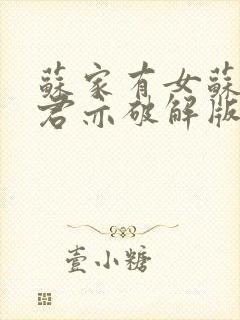 蘇家有女蘇
君亦破解版
壹小糖